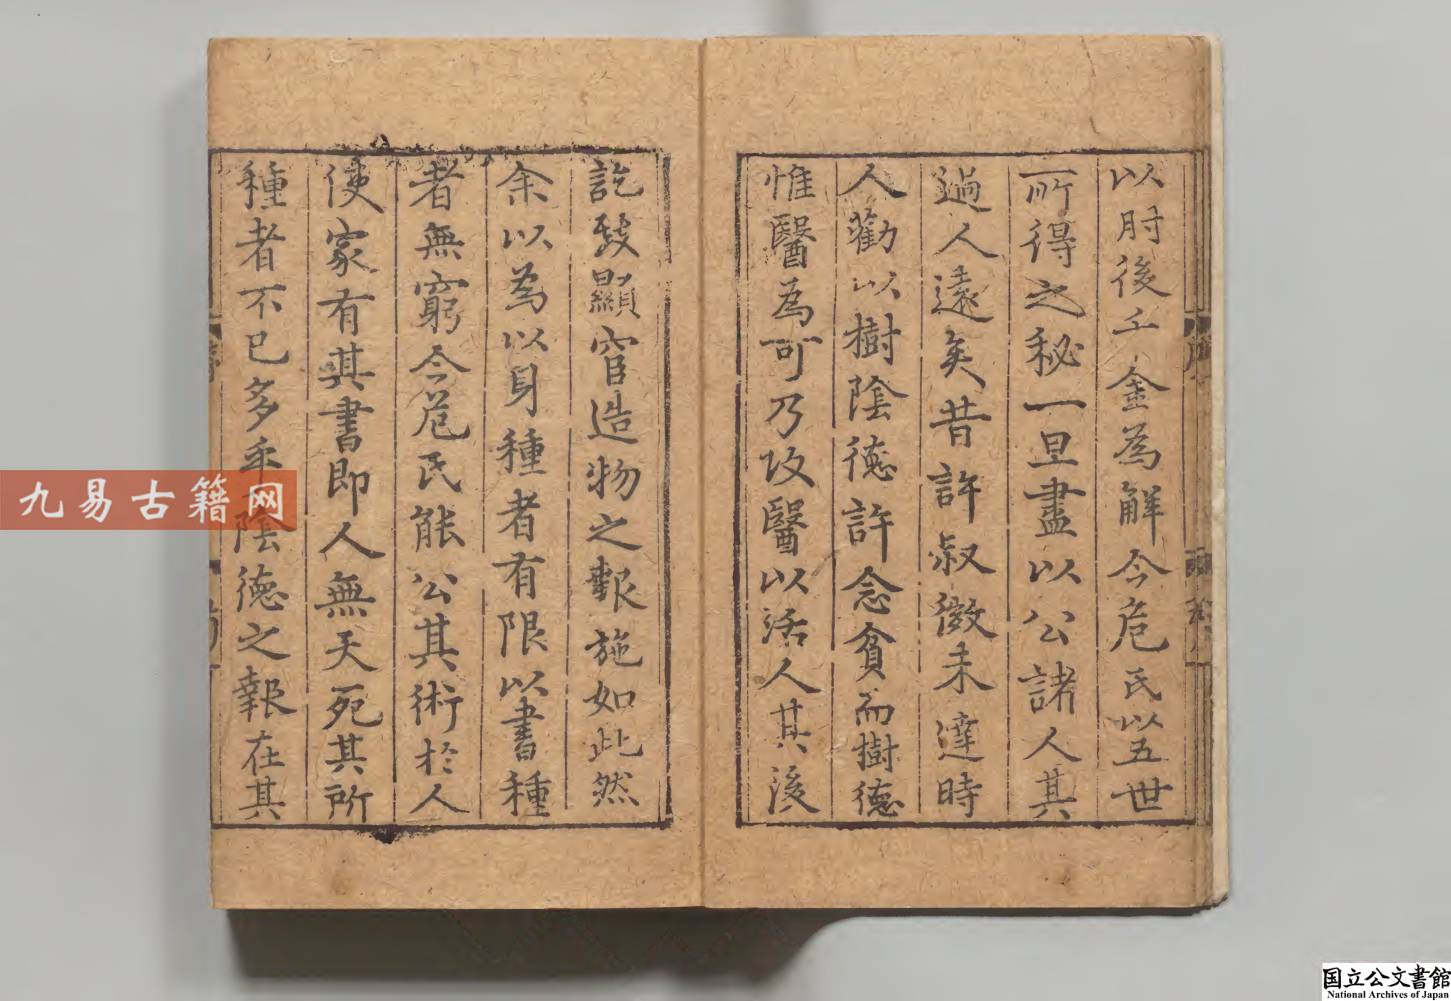 以肘後千金為解今危氏以五世
所得之秘一旦盡以公諸人其
過人遠矣昔許叔微未達時
人勸以樹陰德許念貧而樹德
惟醫為可乃攻醫以活人其後
訖致顯宦造物之報施如此然
余以為以身種者有限以書種
者無窮今危氏能公其術扵人
使家有其書即人無夭死其所
種者不已多乎陰德之報在其
九易古籍网
国立公文書館
National Archives of Japan